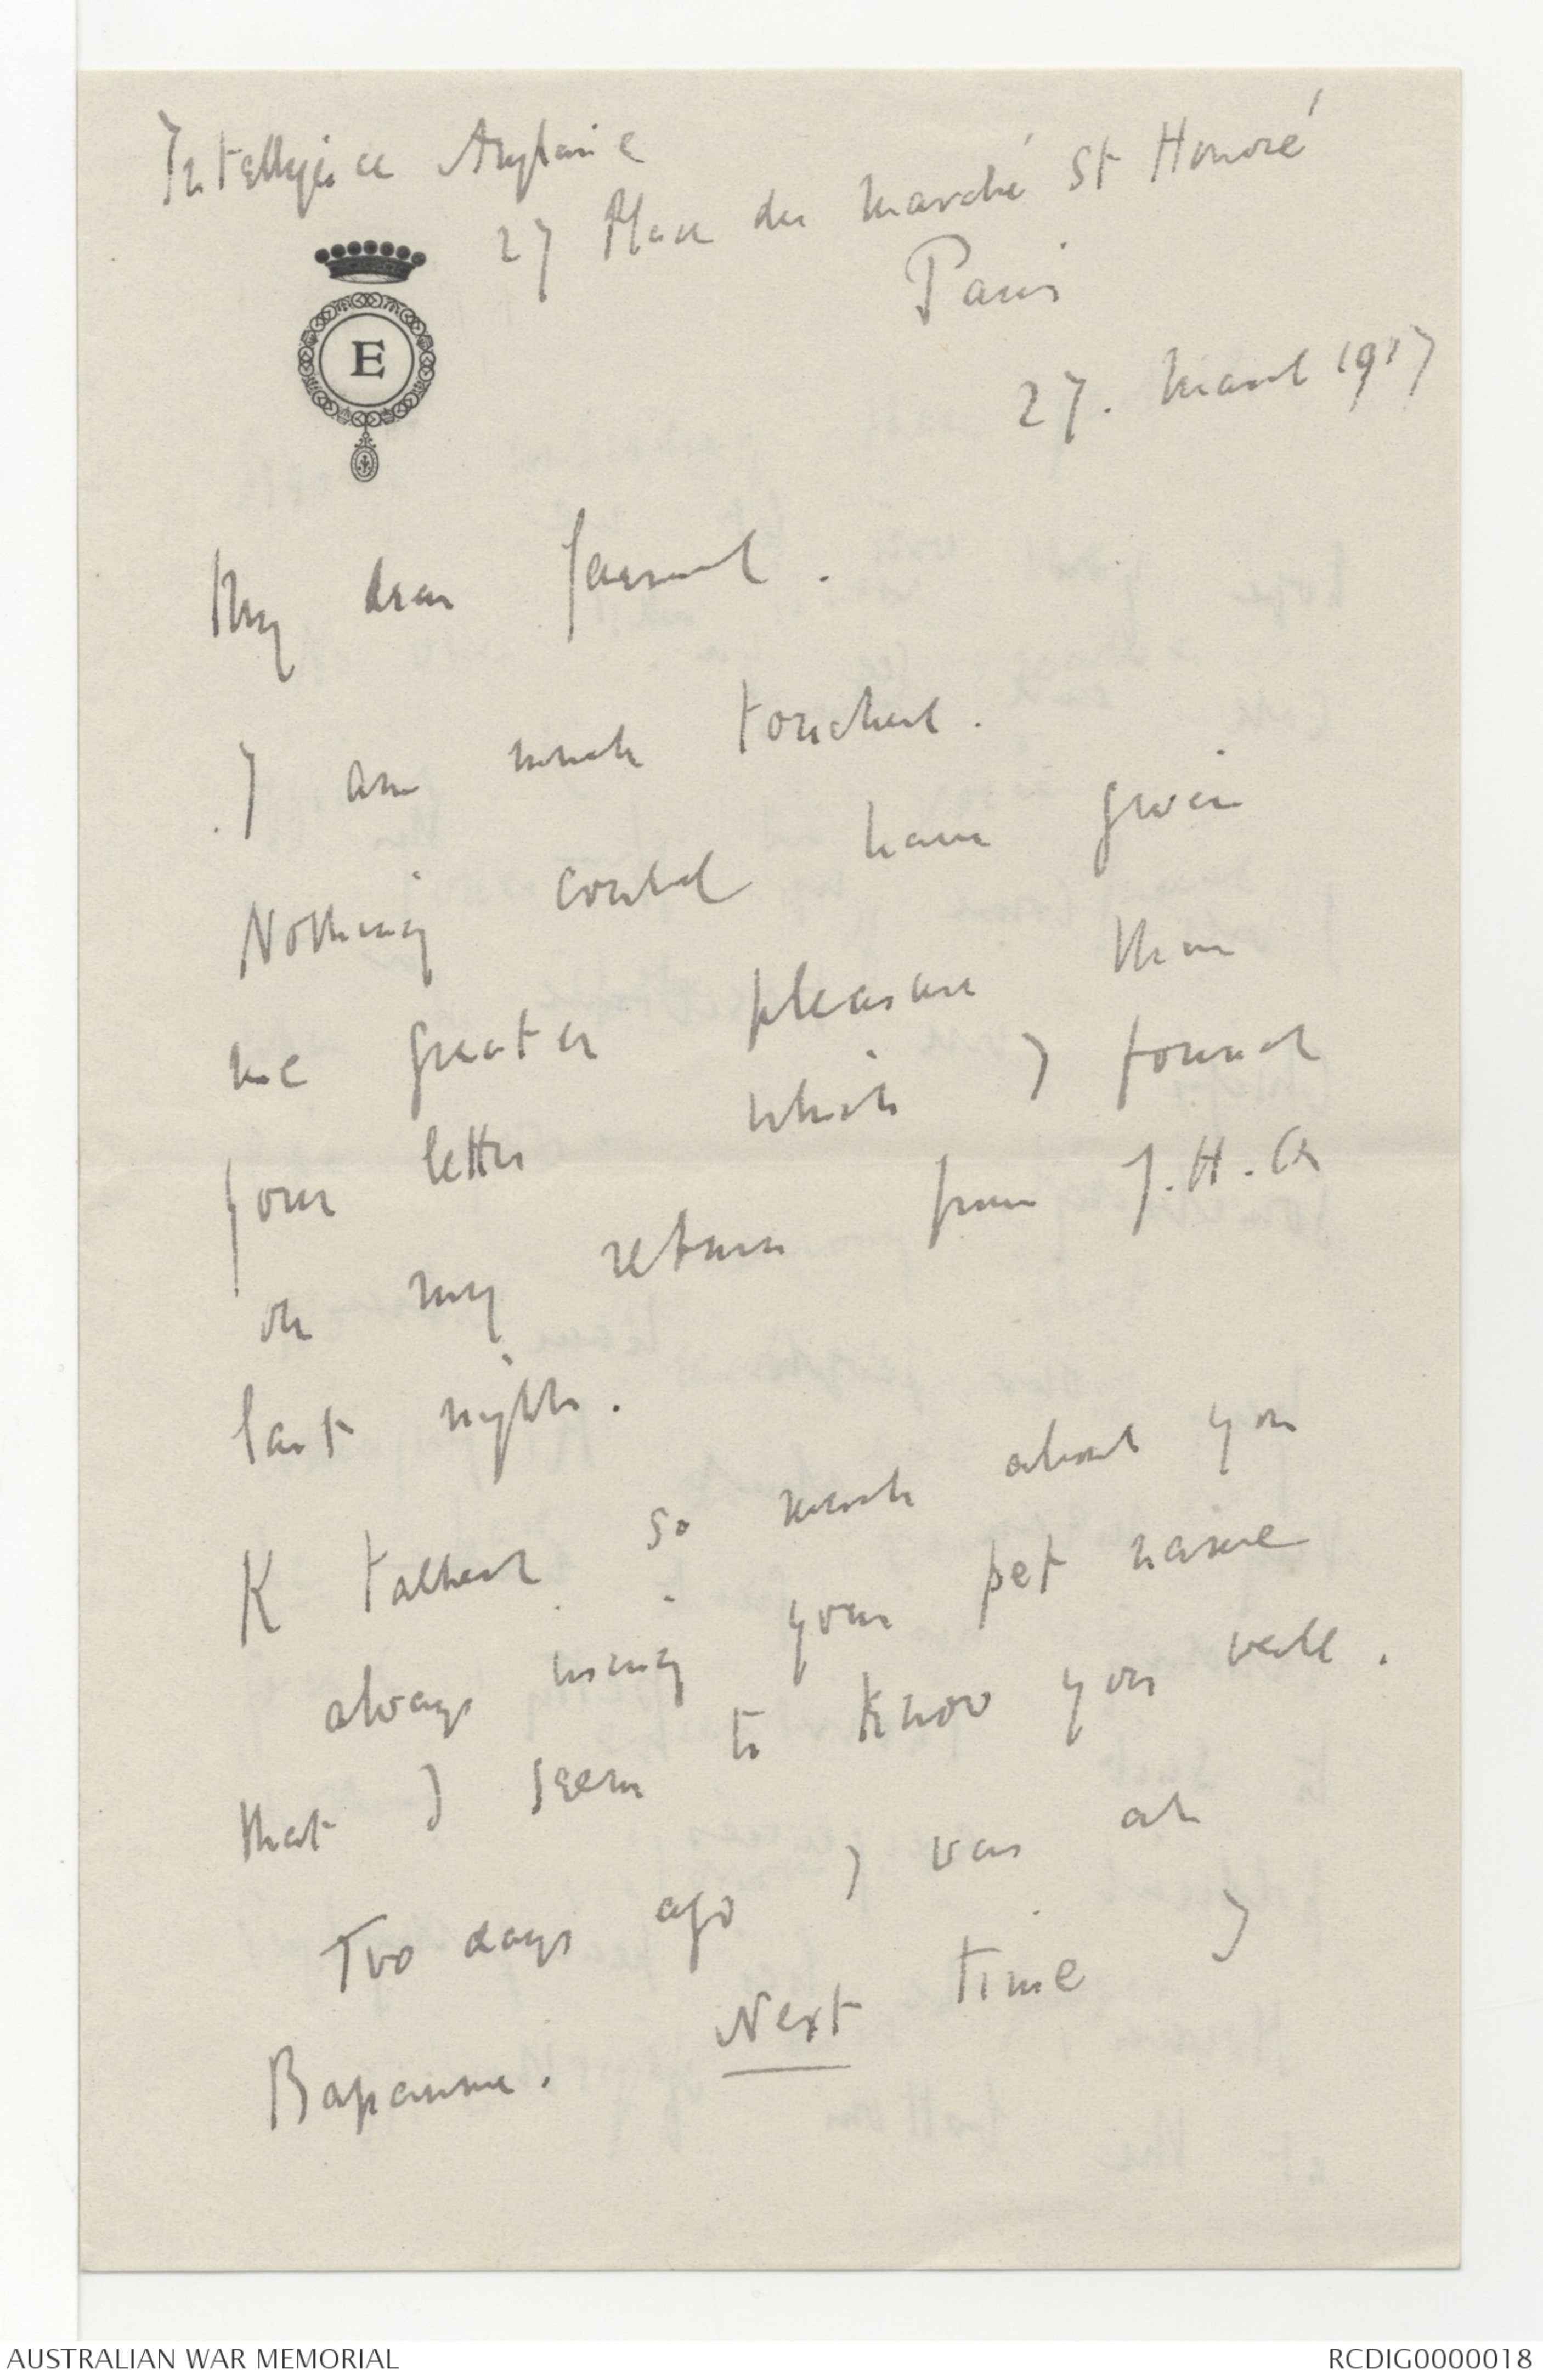 Intelligence Anglaise
27 Place du Marché St Honoré
Paris
27. March 1917
E
My dear General.
I am much touched.
Nothing could have given
me greater pleasure than
your letter which I found
on my return from G.H.Q
last night.
K talked so much about you
always using your pet name
that I seem to know you well.
Two days ago I was at
Bapaume. Next time I
AUSTRALIAN WAR MEMORIAL
RCDIG0000018